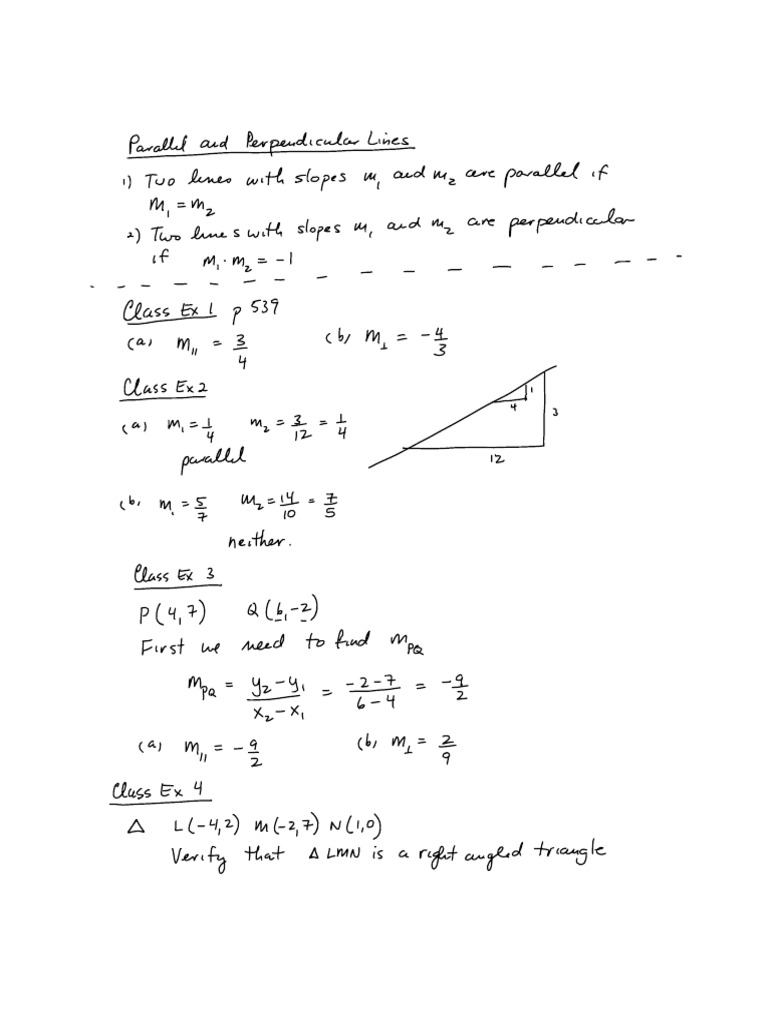 Parallel and Perpendicular Lines
1) Two lines with slopes m₁ and m₂ are parallel if
m₁ = m₂
2) Two lines with slopes m₁ and m₂ are perpendicular
if m₁·m₂ = -1
Class Ex 1 p 539
(a) m∥ = 3/4 (b) m⊥ = -4/3
Class Ex 2
(a) m₁ = 1/4 m₂ = 3/12 = 1/4
parallel
1
4
3
12
(b) m₁ = 5/7 m₂ = 14/10 = 7/5
neither.
Class Ex 3
P(4,7) Q(6,-2)
First we need to find m_PQ
m_PQ = (y₂-y₁)/(x₂-x₁) = (-2-7)/(6-4) = -9/2
(a) m∥ = -9/2 (b) m⊥ = 2/9
Class Ex 4
△ L(-4,2) M(-2,7) N(1,0)
Verify that △LMN is a right angled triangle